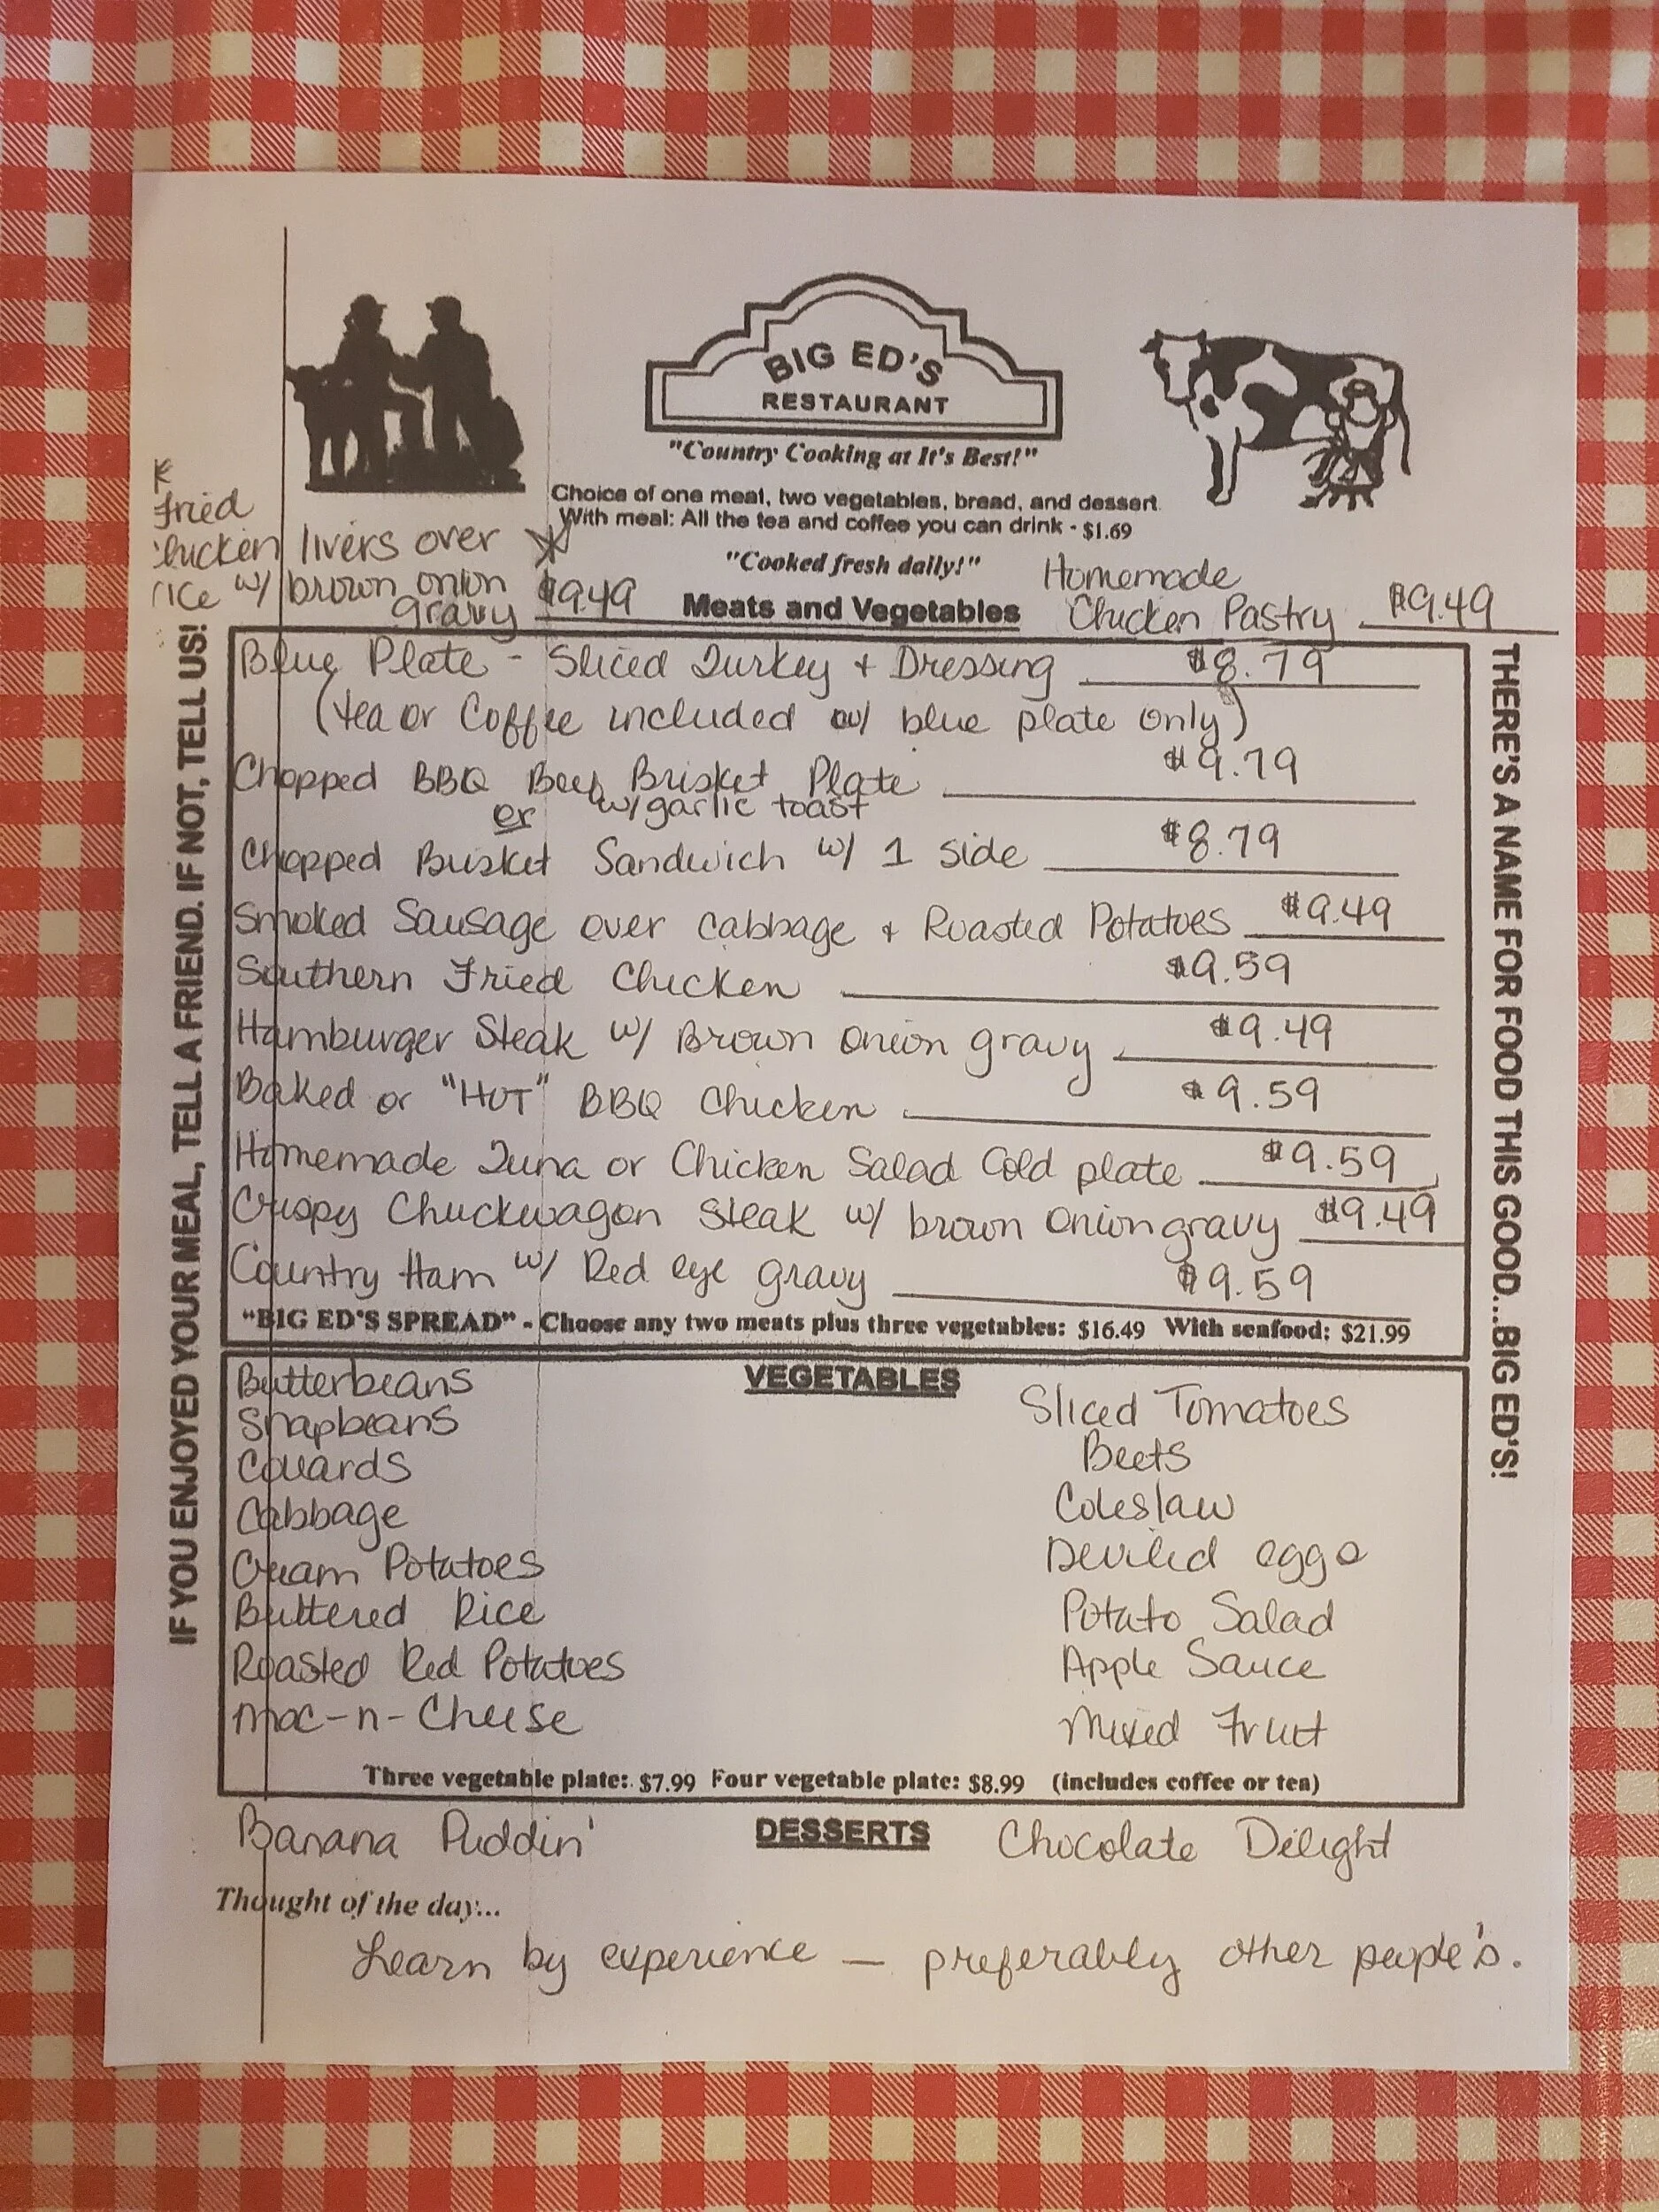 BIG ED'S
RESTAURANT
"Country Cooking at It's Best!"
Choice of one meat, two vegetables, bread, and dessert
With meal: All the tea and coffee you can drink - $1.69
"Cooked fresh daily!"
Fried
Chicken livers over
rice w/ brown onion
gravy $9.49
Meats and Vegetables
Homemade
Chicken Pastry $9.49
IF YOU ENJOYED YOUR MEAL, TELL A FRIEND. IF NOT, TELL US!
Blue Plate - Sliced Turkey + Dressing $8.79
(tea or Coffee included w/ blue plate only)
Chopped BBQ Beef Brisket Plate $9.79
or w/garlic toast
Chopped Brisket Sandwich w/ 1 side $8.79
Smoked Sausage over Cabbage + Roasted Potatoes $9.49
Southern Fried Chicken $9.59
Hamburger Steak w/ Brown Onion gravy $9.49
Baked or "HOT" BBQ Chicken $9.59
Homemade Tuna or Chicken Salad Cold plate $9.59
Crispy Chuckwagon Steak w/ brown onion gravy $9.49
Country Ham w/ Red eye gravy $9.59
"BIG ED'S SPREAD" - Choose any two meats plus three vegetables: $16.49 With seafood: $21.99
THERE'S A NAME FOR FOOD THIS GOOD...BIG ED'S!
VEGETABLES
Butterbeans
Snapbeans
Collards
Cabbage
Cream Potatoes
Buttered Rice
Roasted Red Potatoes
Mac-n-Cheese
Sliced Tomatoes
Beets
Coleslaw
Deviled eggs
Potato Salad
Apple Sauce
Mixed Fruit
Three vegetable plate: $7.99 Four vegetable plate: $8.99 (includes coffee or tea)
DESSERTS
Banana Puddin'
Chocolate Delight
Thought of the day...
Learn by experience — preferably other people's.